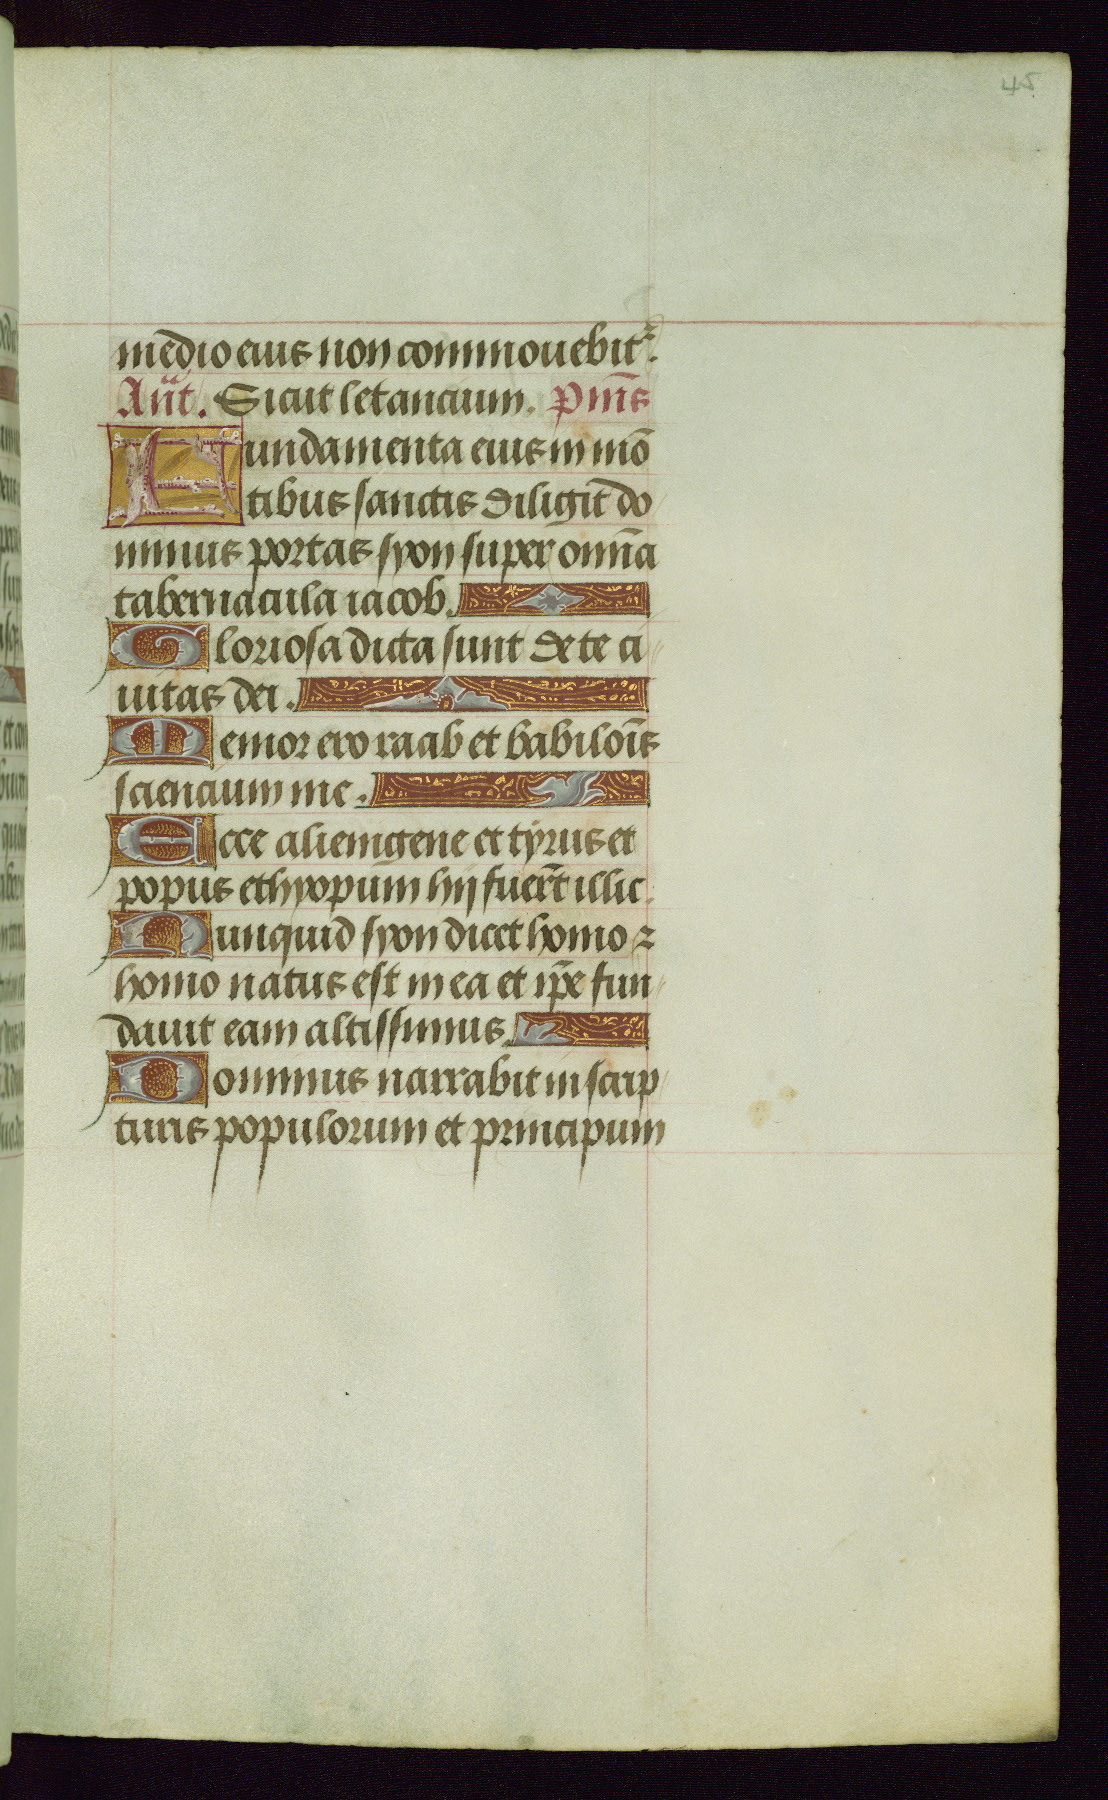 45
medio eius non commouebit᷑.
Añt. Sicut letancium. p̃ms̃
Fundamenta eius in mō
tibus sanctis diligit do
minus portas syon super omĩa
tabernacula iacob.
Gloriosa dicta sunt de te ci
uitas dei.
Memor ero raab et babiloĩs
sciencium me.
Ecce alienigene et tyrus et
popus ethyopum hij fuer̃t illic.
Nunquid syon dicet homo ⁊
homo natus est in ea et ip̃e fun
dauit eam altissimus.
Dominus narrabit in scrip
turis populorum et principum